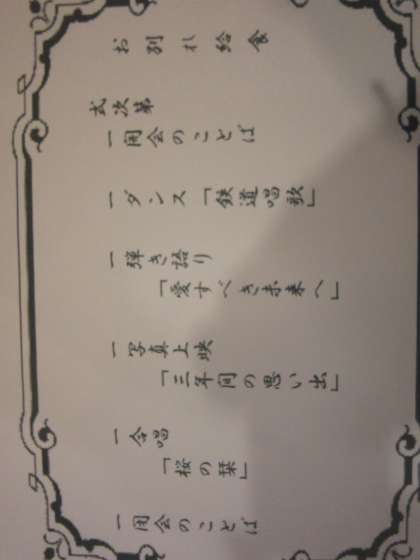 お別れ給食
式次第
一開会のことば
一ダンス「鉄道唱歌」
一弾き語り
「愛すべき未来へ」
一写真上映
「三年間の思い出」
一合唱
「桜の栞」
一閉会のことば